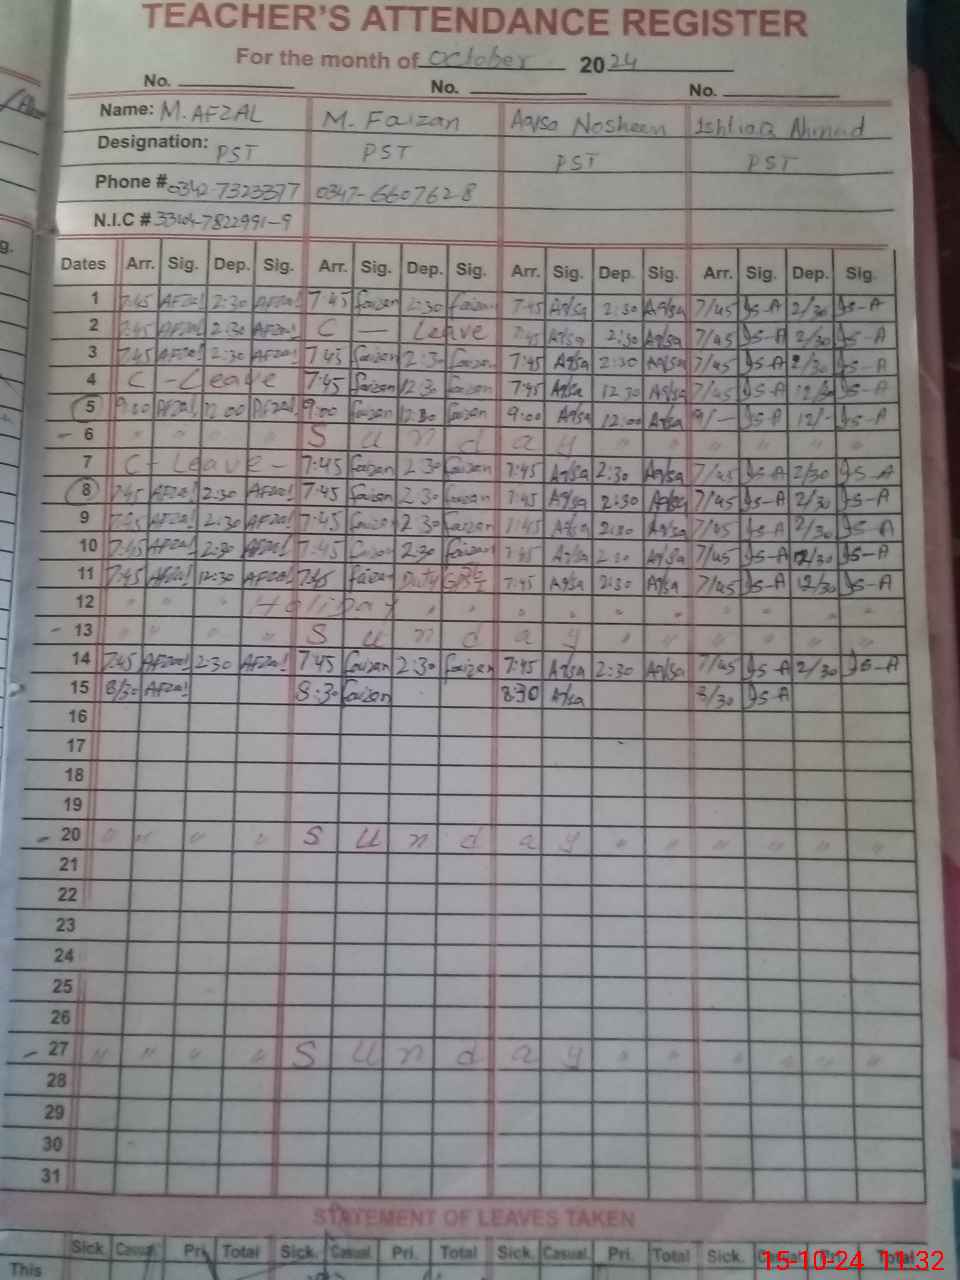 TEACHER'S ATTENDANCE REGISTER
For the month of October 2024
No. No. No.
Name: M.AFZAL M. Faizan Aqsa Nosheen Ishtiaq Ahmad
Designation: PST PST PST PST
Phone # 0342-7323377 0347-660762-8
N.I.C #
Dates Arr. Sig. Dep. Sig. Arr. Sig. Dep. Sig. Arr. Sig. Dep. Sig. Arr. Sig. Dep. Sig.
1 7:45 AFzal 2:30 AFzal 7:45 faizan 2:30 faizan 7:45 Aqsa 2:30 Aqsa 7/45 Is-A 2/30 Is-A
2 7:45 AFzal 2:30 AFzal C — Leave 7:45 Aqsa 2:30 Aqsa 7/45 Is-A 2/30 Is-A
3 7:45 AFzal 2:30 AFzal 7:45 faizan 2:30 faizan 7:45 Aqsa 2:30 Aqsa 7/45 Is-A 2/30 Is-A
4 C - Leave 7:45 faizan 12:30 faizan 7:45 Aqsa 12:30 Aqsa 7/45 Is-A 12/30 Is-A
5 9:00 AFzal 12:00 AFzal 9:00 faizan 12:30 faizan 9:00 Aqsa 12:00 Aqsa 9/- Is-A 12/- Is-A
- 6 " " " " S u n d a y " " " " " "
7 C - Leave - 7:45 faizan 2:30 faizan 7:45 Aqsa 2:30 Aqsa 7/45 Is-A 2/30 Is-A
8 7:45 AFzal 2:30 AFzal 7:45 faizan 2:30 faizan 7:45 Aqsa 2:30 Aqsa 7/45 Is-A 2/30 Is-A
9 7:45 AFzal 2:30 AFzal 7:45 faizan 2:30 faizan 7:45 Aqsa 2:30 Aqsa 7/45 Is-A 2/30 Is-A
10 7:45 AFzal 2:30 AFzal 7:45 faizan 2:30 faizan 7:45 Aqsa 2:30 Aqsa 7/45 Is-A 12/30 Is-A
11 7:45 AFzal 12:30 AFzal 7:45 faizan Duty 7:45 Aqsa 2:30 Aqsa 7/45 Is-A 12/30 Is-A
12 " " " Holiday " " " " " " " " "
- 13 " " " " S u n d a y " " " " " "
14 7:45 AFzal 2:30 AFzal 7:45 faizan 2:30 faizan 7:45 Aqsa 2:30 Aqsa 7/45 Is-A 2/30 Is-A
15 8/30 AFzal 8:30 faizan 8:30 Aqsa 8/30 Is-A
16
17
18
19
- 20 " " " " S u n d a y " " " " " "
21
22
23
24
25
26
- 27 " " " " S u n d a y " " " " " "
28
29
30
31
STATEMENT OF LEAVES TAKEN
Sick. Casual. Pri. Total Sick. Casual. Pri. Total Sick. Casual. Pri. Total Sick. Casual. Pri. Total
This
15-10-24 11:32